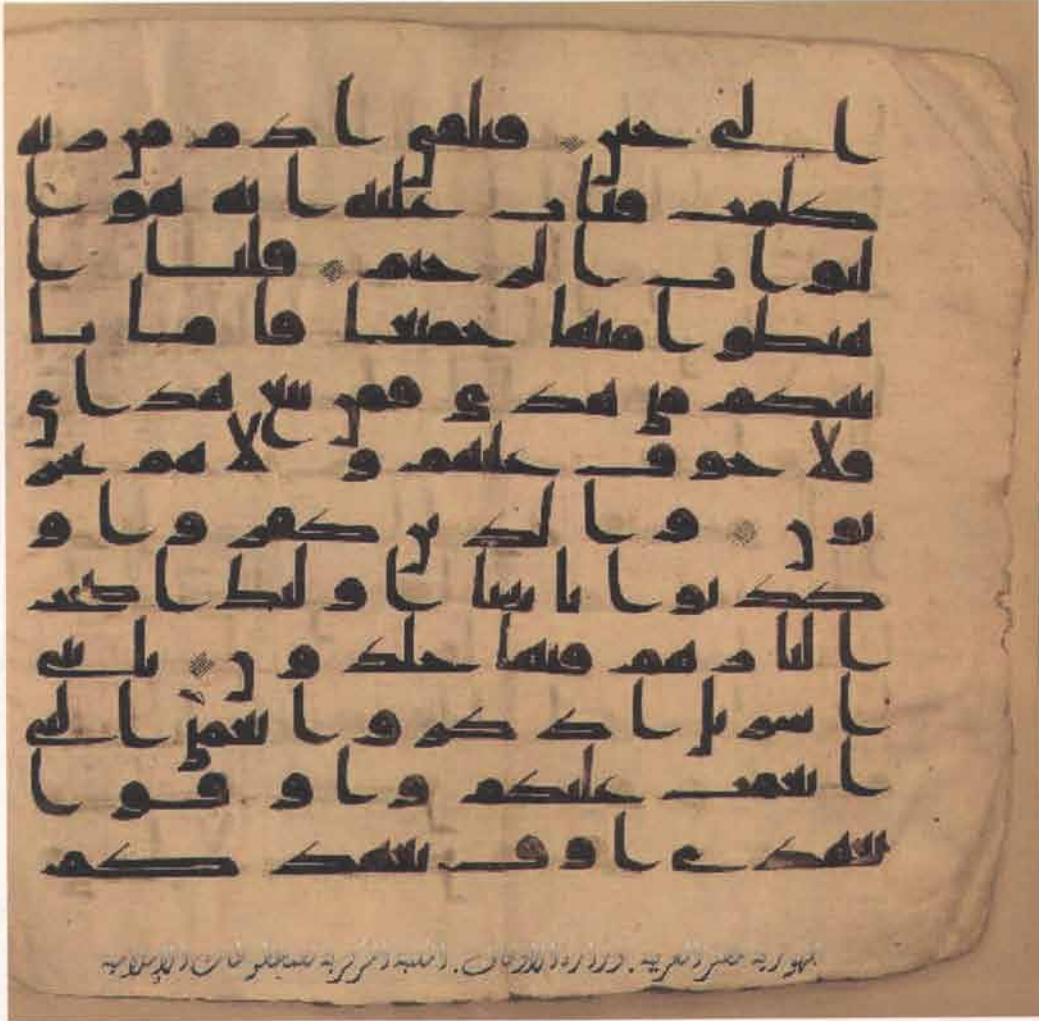 الى حين فتلقى ادم من ربه
كلمت فتاب عليه انه هو ا
لتواب الرحيم قلنا ا
هبطوا منها جميعا فاما يا
تينكم منى هدى فمن تبع هداى
فلا خوف عليهم ولا هم يحز
نون والذين كفروا و
كذبوا باييتنا اولئك اصحب
النار هم فيها خلدون يبنى
اسريل اذكروا نعمتى التى
انعمت عليكم واوفوا
بعهدى اوف بعهدكم
جمهورية مصر العربية . وزارة الأوقاف . المكتبة المركزية للمخطوطات الإسلامية